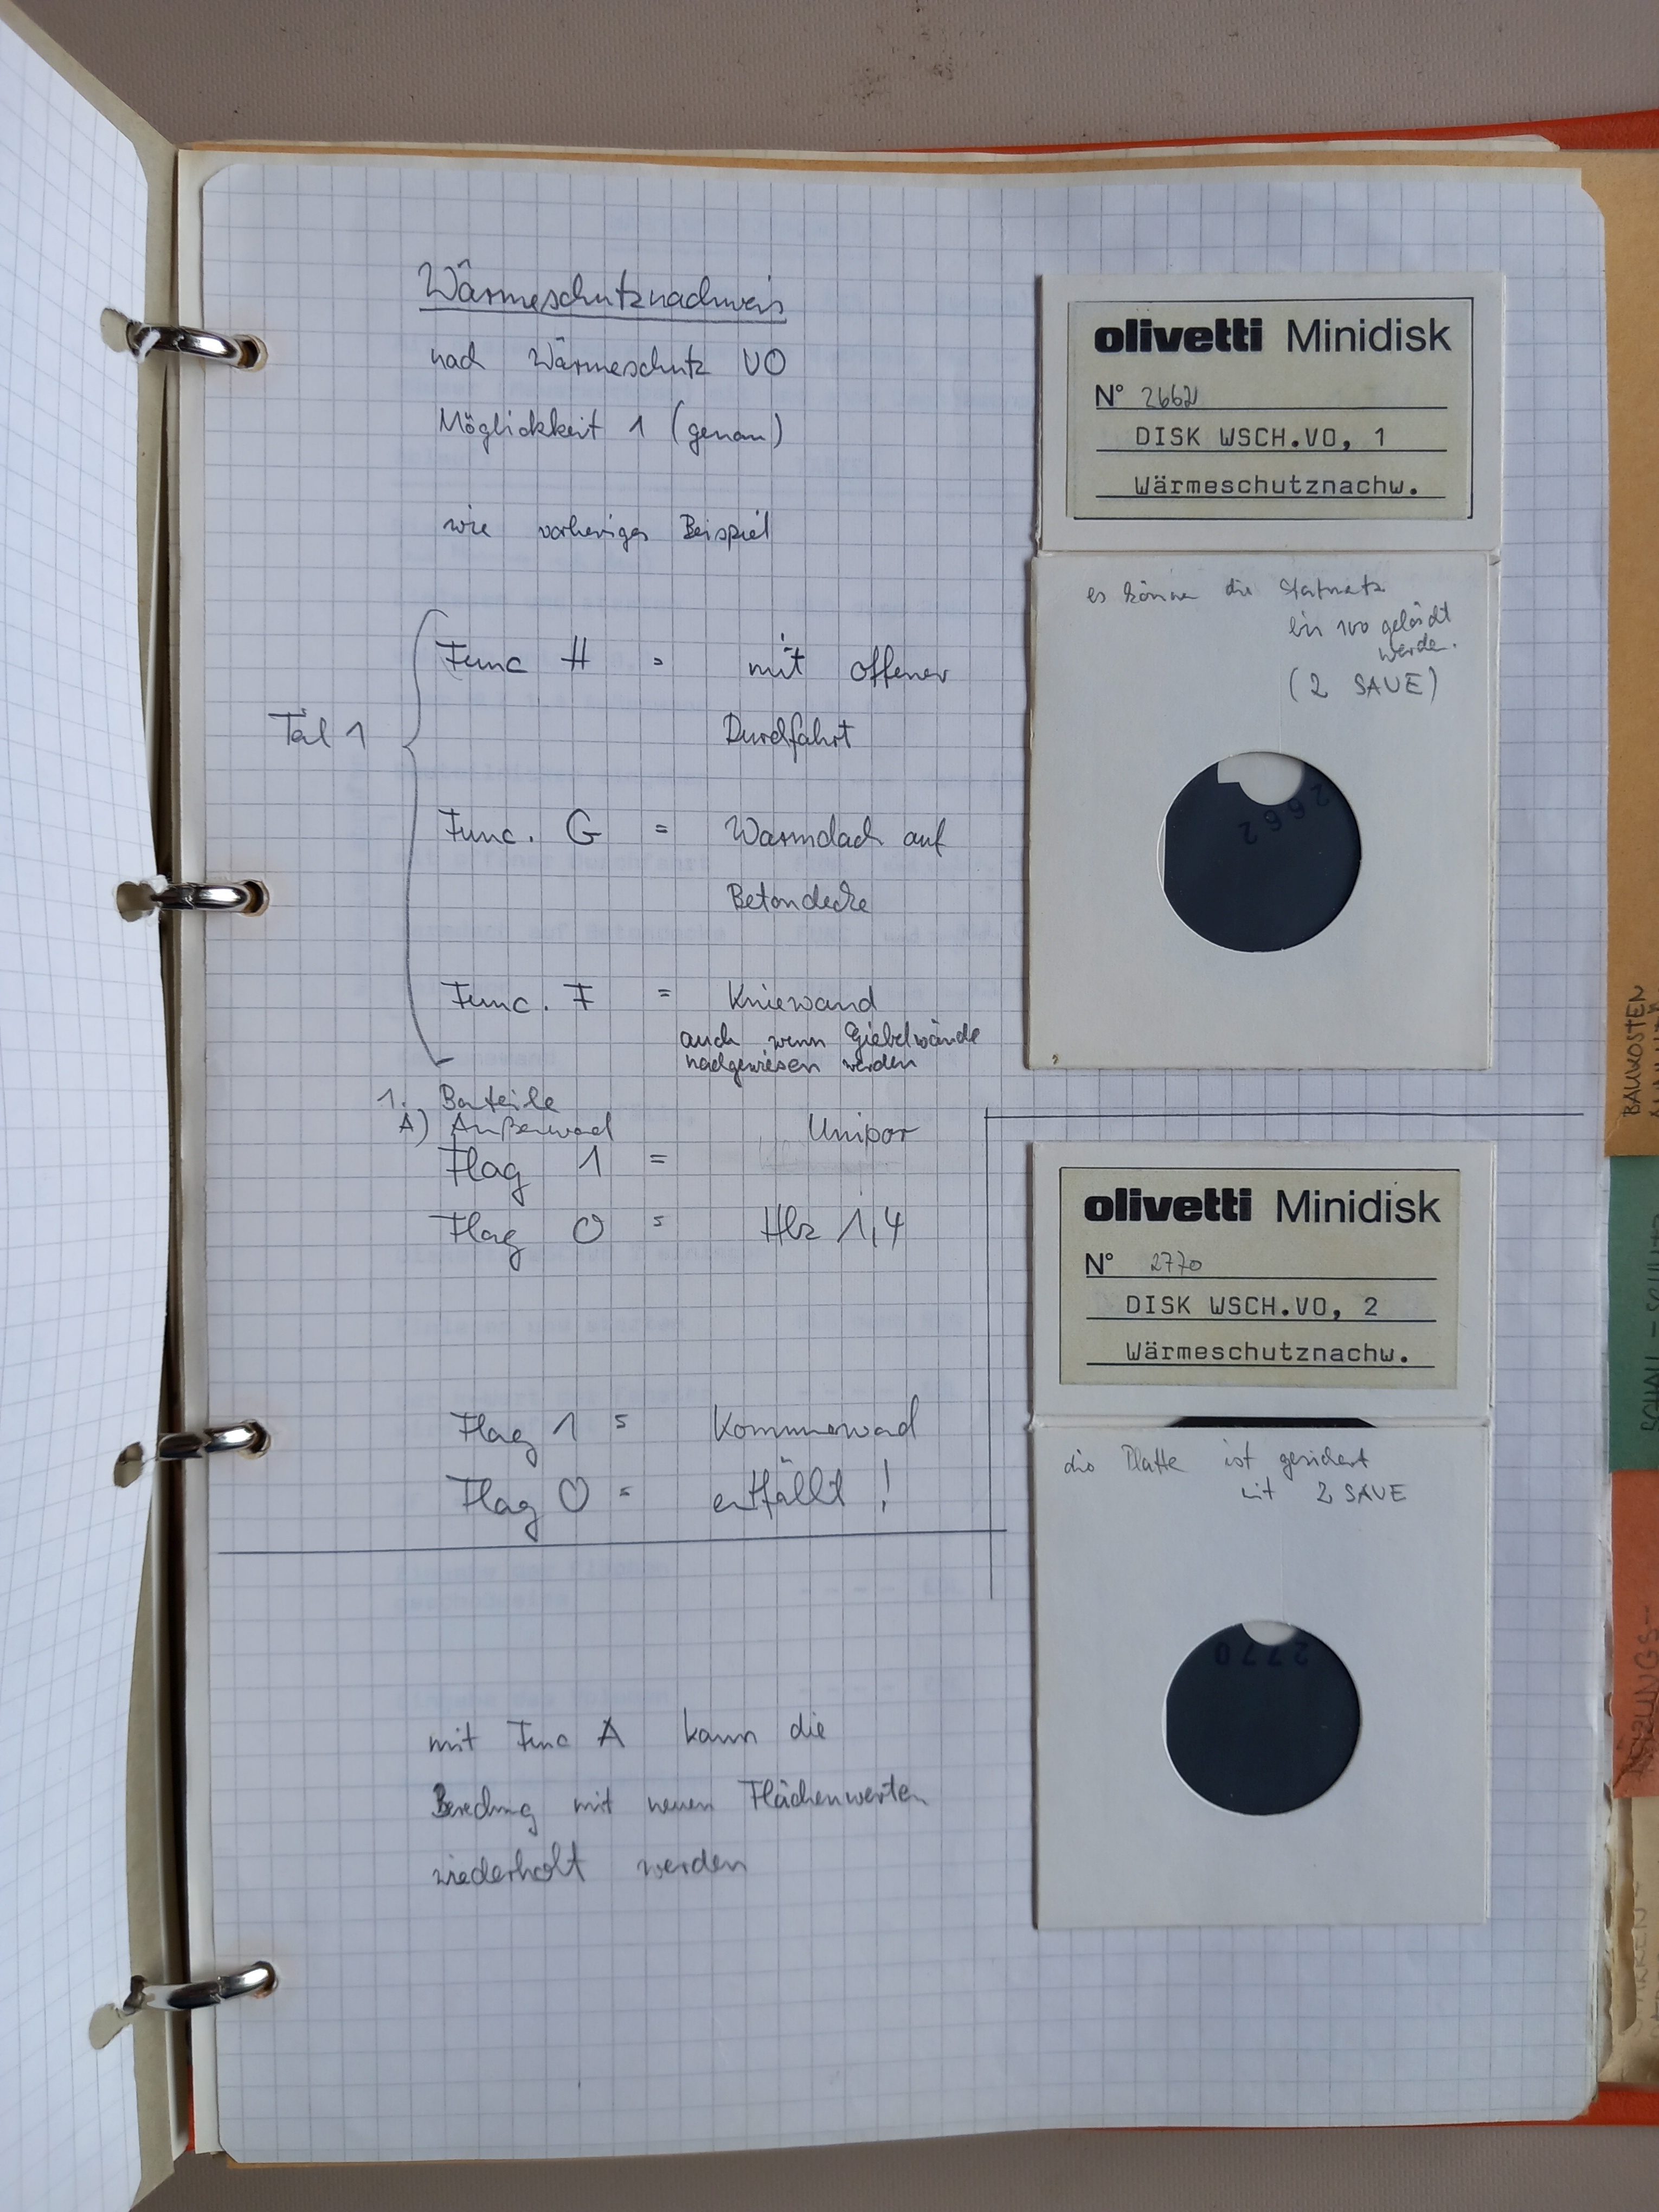 Wärmeschutznachweis
nach Wärmeschutz VO
Möglichkeit 1 (genau)
wie vorheriges Beispiel
Teil 1
Func H = mit offener
Durchfahrt
Func. G = Warmdach auf
Betondecke
Func. F = Kniewand
auch wenn Giebelwände
nachgewiesen werden
1. Bauteile
A) Außenwand
Unipor
Flag 1 =
Flag 0 = Hlz 1,4
Flag 1 = Kommunwand
Flag 0 = entfällt!
mit Func A kann die
Berechnung mit neuen Flächenwerten
wiederholt werden
olivetti Minidisk
N° 2662
DISK WSCH.VO, 1
Wärmeschutznachw.
es können die
bis 100 gelöscht
werden.
(2 SAVE)
2662
olivetti Minidisk
N° 2770
DISK WSCH.VO, 2
Wärmeschutznachw.
die Platte ist gesichert
mit 2 SAVE
2770
BAUKOSTEN